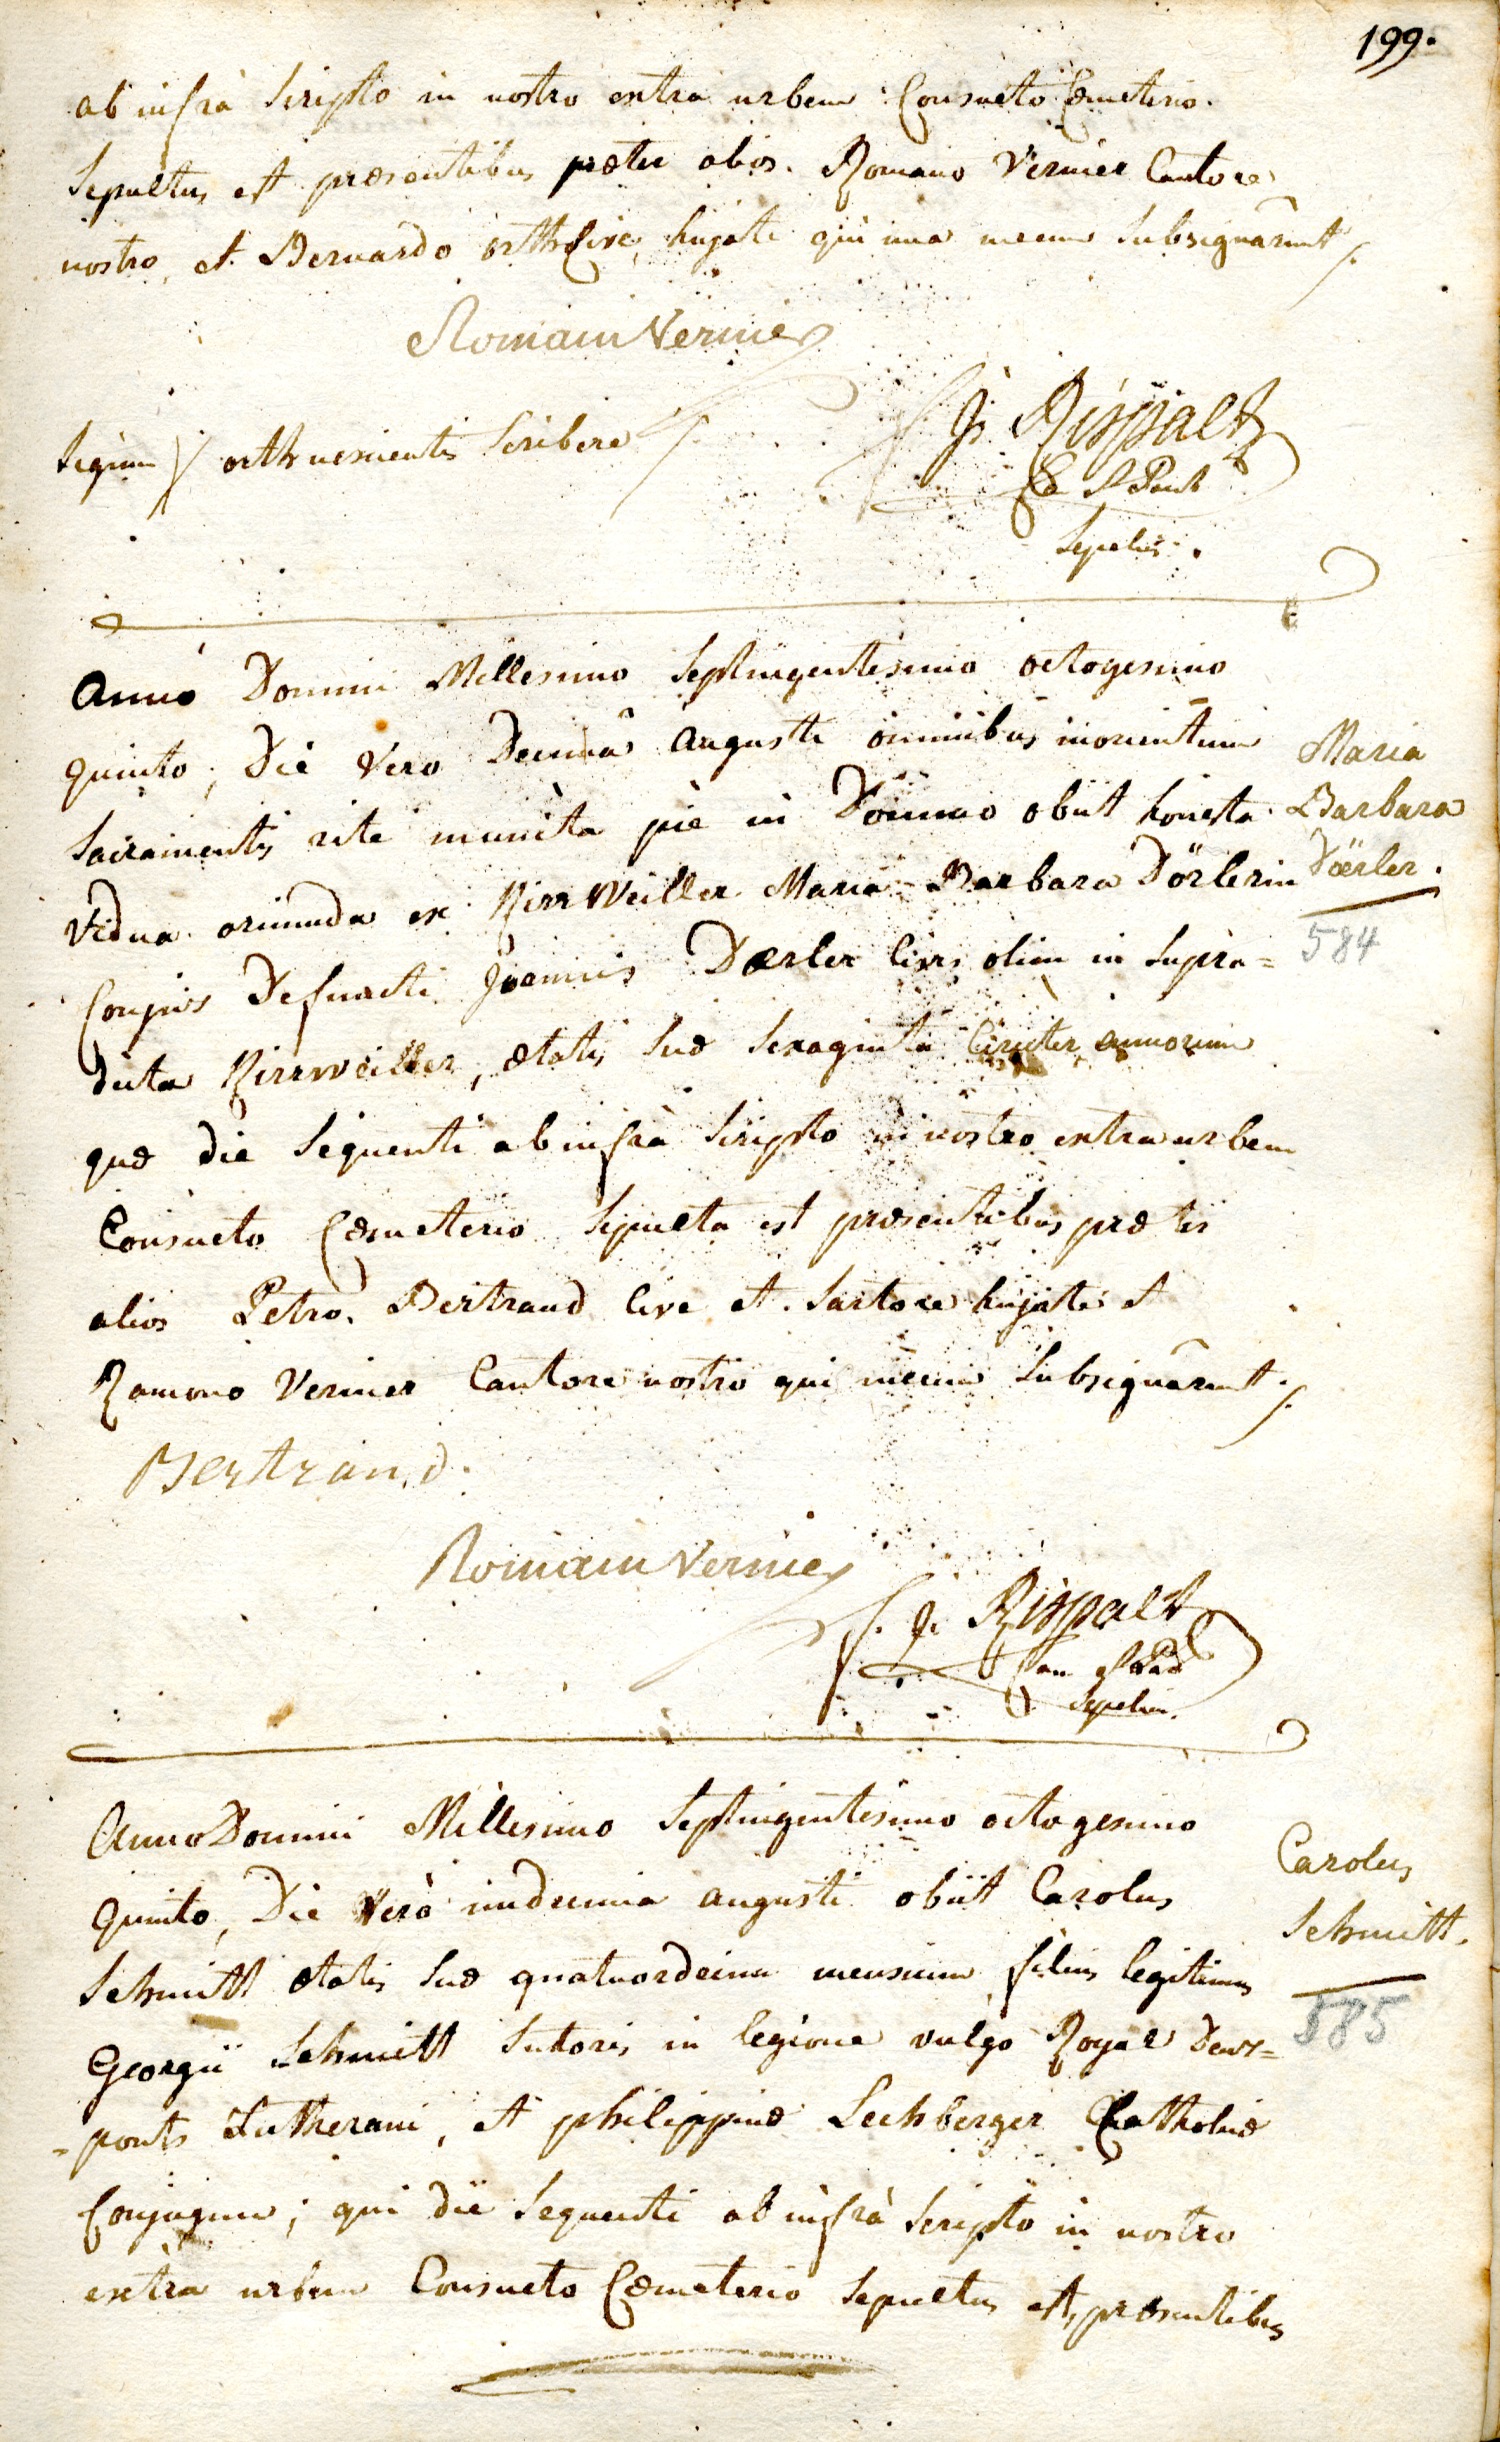 199.
ab infrà scripto in nostro extra urbem Consueto Cœmeterio.
Sepultus est præsentibus præter alios. Romano Vernier Cantore
nostro, et Bernardo orth Cive hujate qui una mecum subsignârunt /.
Romain Vernier
signum orth nescientis scribere /.
J: Rispalt
Sepelivi.
Anno Domini Millesimo Septingentesimo octogesimo
quinto, Die Vero Decimâ Augusti omnibus morientium
Sacramentis rite munita piè in Domino obiit honesta
Vidua oriunda ex Kirrweiller Maria Barbara Dörlerin
Conjux Defuncti Joannis Dœrler Civis olim in supra=
dicta Kirrweiller, ætatis suæ sexaginta Circiter annorum
quæ die sequenti ab infrà scripto in nostro extra urbem
Consueto Cœmeterio sepulta est præsentibus præter
alios Petro Bertrand Cive et Sartore hujate et
Romano Vernier Cantore nostro qui mecum subsignârunt /.
Maria
Barbara
Dœrler.
584
Bertrand.
Romain Vernier
J: Rispalt
Sepelivi.
Anno Domini Millesimo Septingentesimo octogesimo
Quinto, Die Verò undecima augusti obiit Carolus
Schmitt ætatis suæ quatuordecim mensium filius legitimus
Georgii Schmitt Sutoris in legione vulgo Royal Deux=
=ponts Lutherani, et philippinæ Lechberger Catholicæ
Conjugum; qui die sequenti ab infrà scripto in nostro
extra urbem Consueto Cœmeterio sepultus est, præsentibus
Carolus
Schmitt.
585